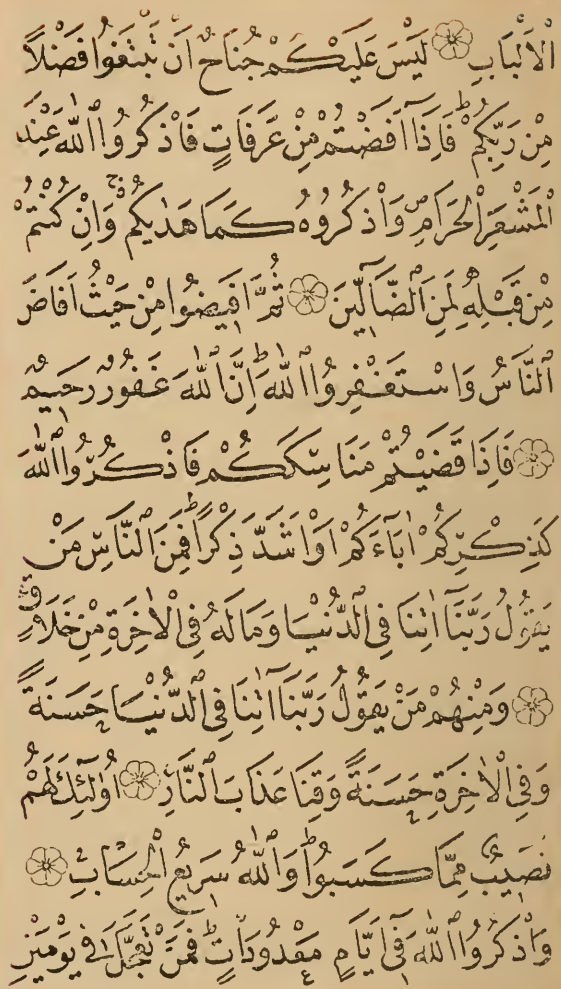 الْاَلْبَابِ ۞ لَيْسَ عَلَيْكُمْ جُنَاحٌ اَنْ تَبْتَغُوا فَضْلًا
مِنْ رَبِّكُمْؕ فَاِذَٓا اَفَضْتُمْ مِنْ عَرَفَاتٍ فَاذْكُرُوا اللّٰهَ عِنْدَ
الْمَشْعَرِ الْحَرَامِۖ وَاذْكُرُوهُ كَمَا هَدٰيكُمْۚ وَاِنْ كُنْتُمْ
مِنْ قَبْلِهٖ لَمِنَ الضَّٓالّٖينَ ۞ ثُمَّ اَفٖيضُوا مِنْ حَيْثُ اَفَاضَ
النَّاسُ وَاسْتَغْفِرُوا اللّٰهَؕ اِنَّ اللّٰهَ غَفُورٌ رَحٖيمٌ
۞ فَاِذَا قَضَيْتُمْ مَنَاسِكَكُمْ فَاذْكُرُوا اللّٰهَ
كَذِكْرِكُمْ اٰبَٓاءَكُمْ اَوْ اَشَدَّ ذِكْرًاؕ فَمِنَ النَّاسِ مَنْ
يَقُولُ رَبَّنَٓا اٰتِنَا فِي الدُّنْيَا وَمَا لَهُ فِي الْاٰخِرَةِ مِنْ خَلَاقٍ
۞ وَمِنْهُمْ مَنْ يَقُولُ رَبَّنَٓا اٰتِنَا فِي الدُّنْيَا حَسَنَةً
وَفِي الْاٰخِرَةِ حَسَنَةً وَقِنَا عَذَابَ النَّارِ ۞ اُولٰٓئِكَ لَهُمْ
نَصٖيبٌ مِمَّا كَسَبُواؕ وَاللّٰهُ سَرٖيعُ الْحِسَابِ ۞
وَاذْكُرُوا اللّٰهَ فٖٓي اَيَّامٍ مَعْدُودَاتٍؕ فَمَنْ تَعَجَّلَ فٖي يَوْمَيْنِ